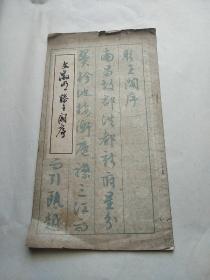 文徵明滕王阁序
滕王阁序
南昌故郡洪都新府星分
翼轸地接衡庐襟三江而
而引瓯越